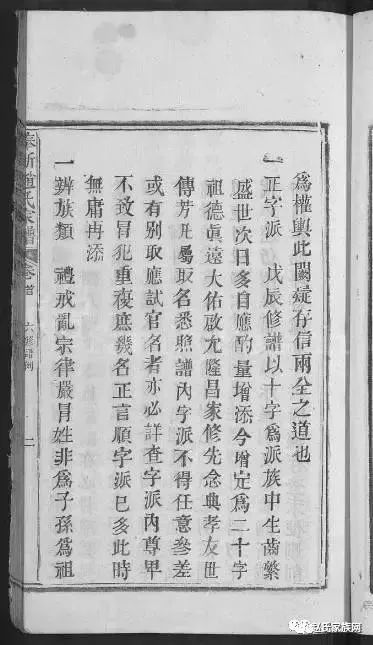 為權輿此闕疑存信兩全之道也
一正字派 戊辰修譜以十字為派族中生齒繁
盛世次日多自應酌量增添今增定為二十字
祖德真遠大佑啟允隆昌家修先念典孝友世
傳芳凡屬取名悉照譜內字派不得任意參差
或有別取應試官名者亦必詳查字派內尊卑
不致冒犯重複庶幾名正言順字派已多此時
無庸再添
一辨族類 禮戒亂宗律嚴冒姓非為子孫為祖
奉新趙氏家譜 卷首 六修譜例 二
趙氏家族网